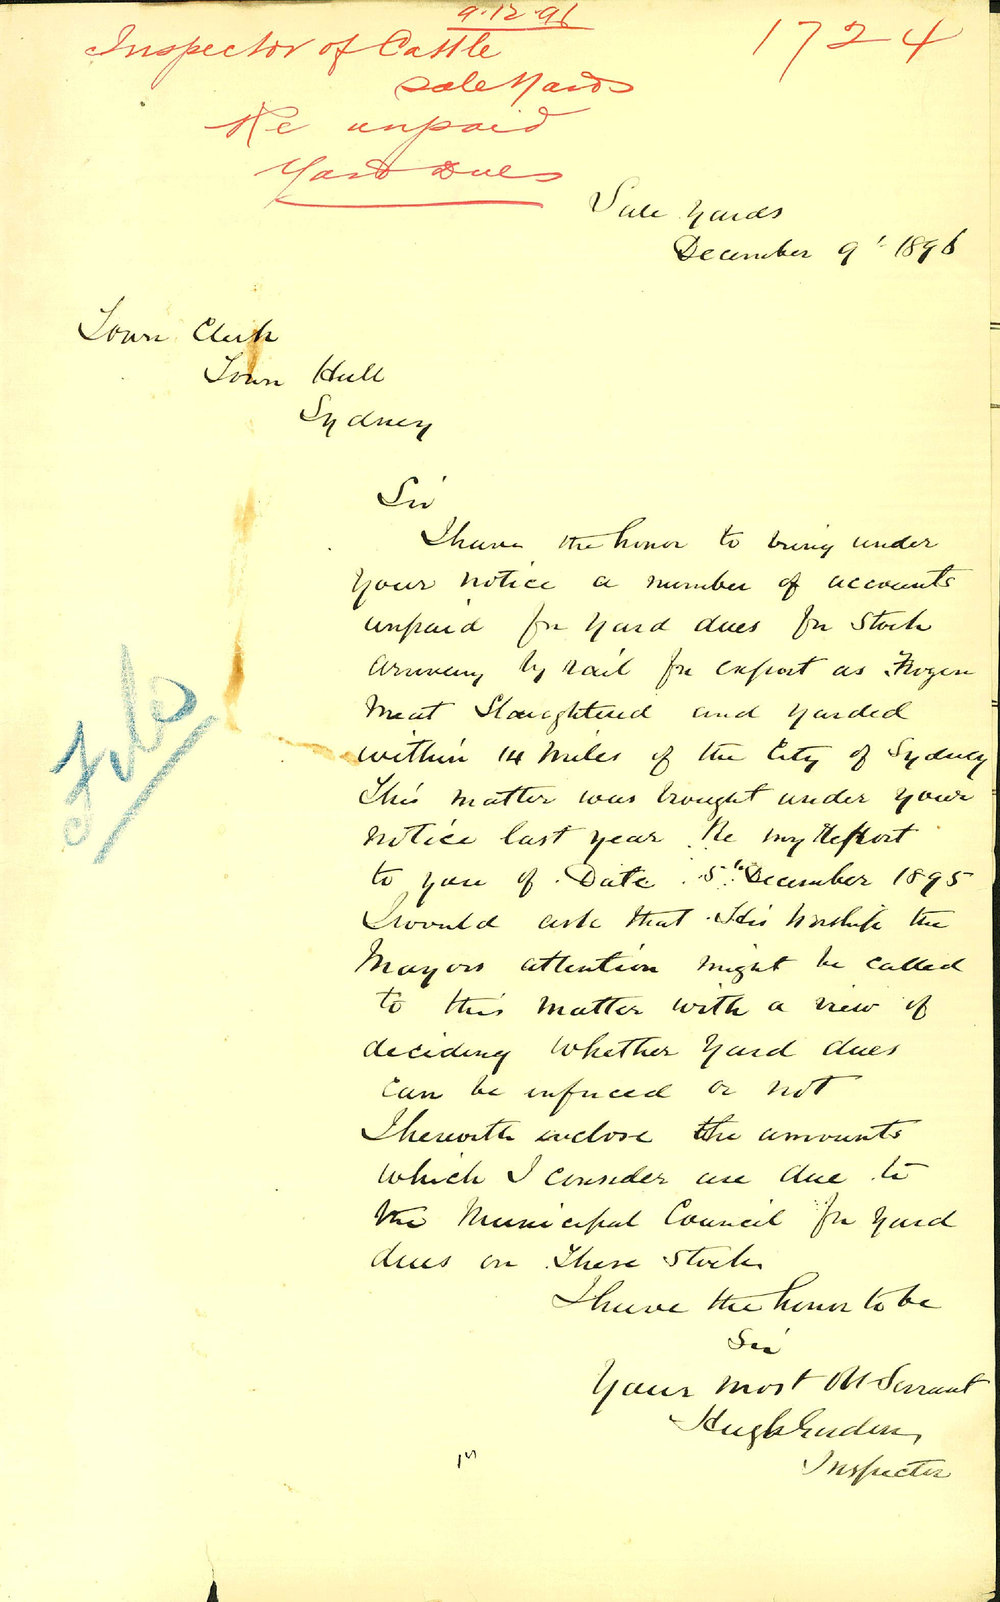 9.12.96
1724
Inspector of Cattle
Sale Yards
Re unpaid
Yard Dues
Sale Yards
December 9' 1896
Town Clerk
Town Hall
Sydney
Sir
I have the honor to bring under
your notice a number of accounts
unpaid for yard dues for stock
arriveng by rail for export as Frozen
Meat Slaughtered and yarded
within 14 miles of the City of Sydney
This matter was brought under your
notice last year Re my Report
to you of Date 5th December 1895
I would ask that His Worship the
Mayors attention might be called
to this matter with a view of
deciding whether Yard dues
can be enforced or not
I herewith enclose the amounts
which I consider are due to
the Municipal Council for Yard
dues on These Stock
I have the honor to be
Sir
Your most Obt Servant
Hugh
Inspector
File